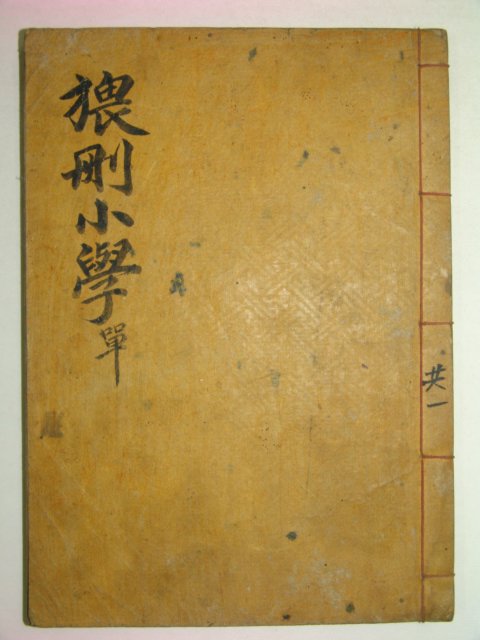 猥刪小學 單
共一